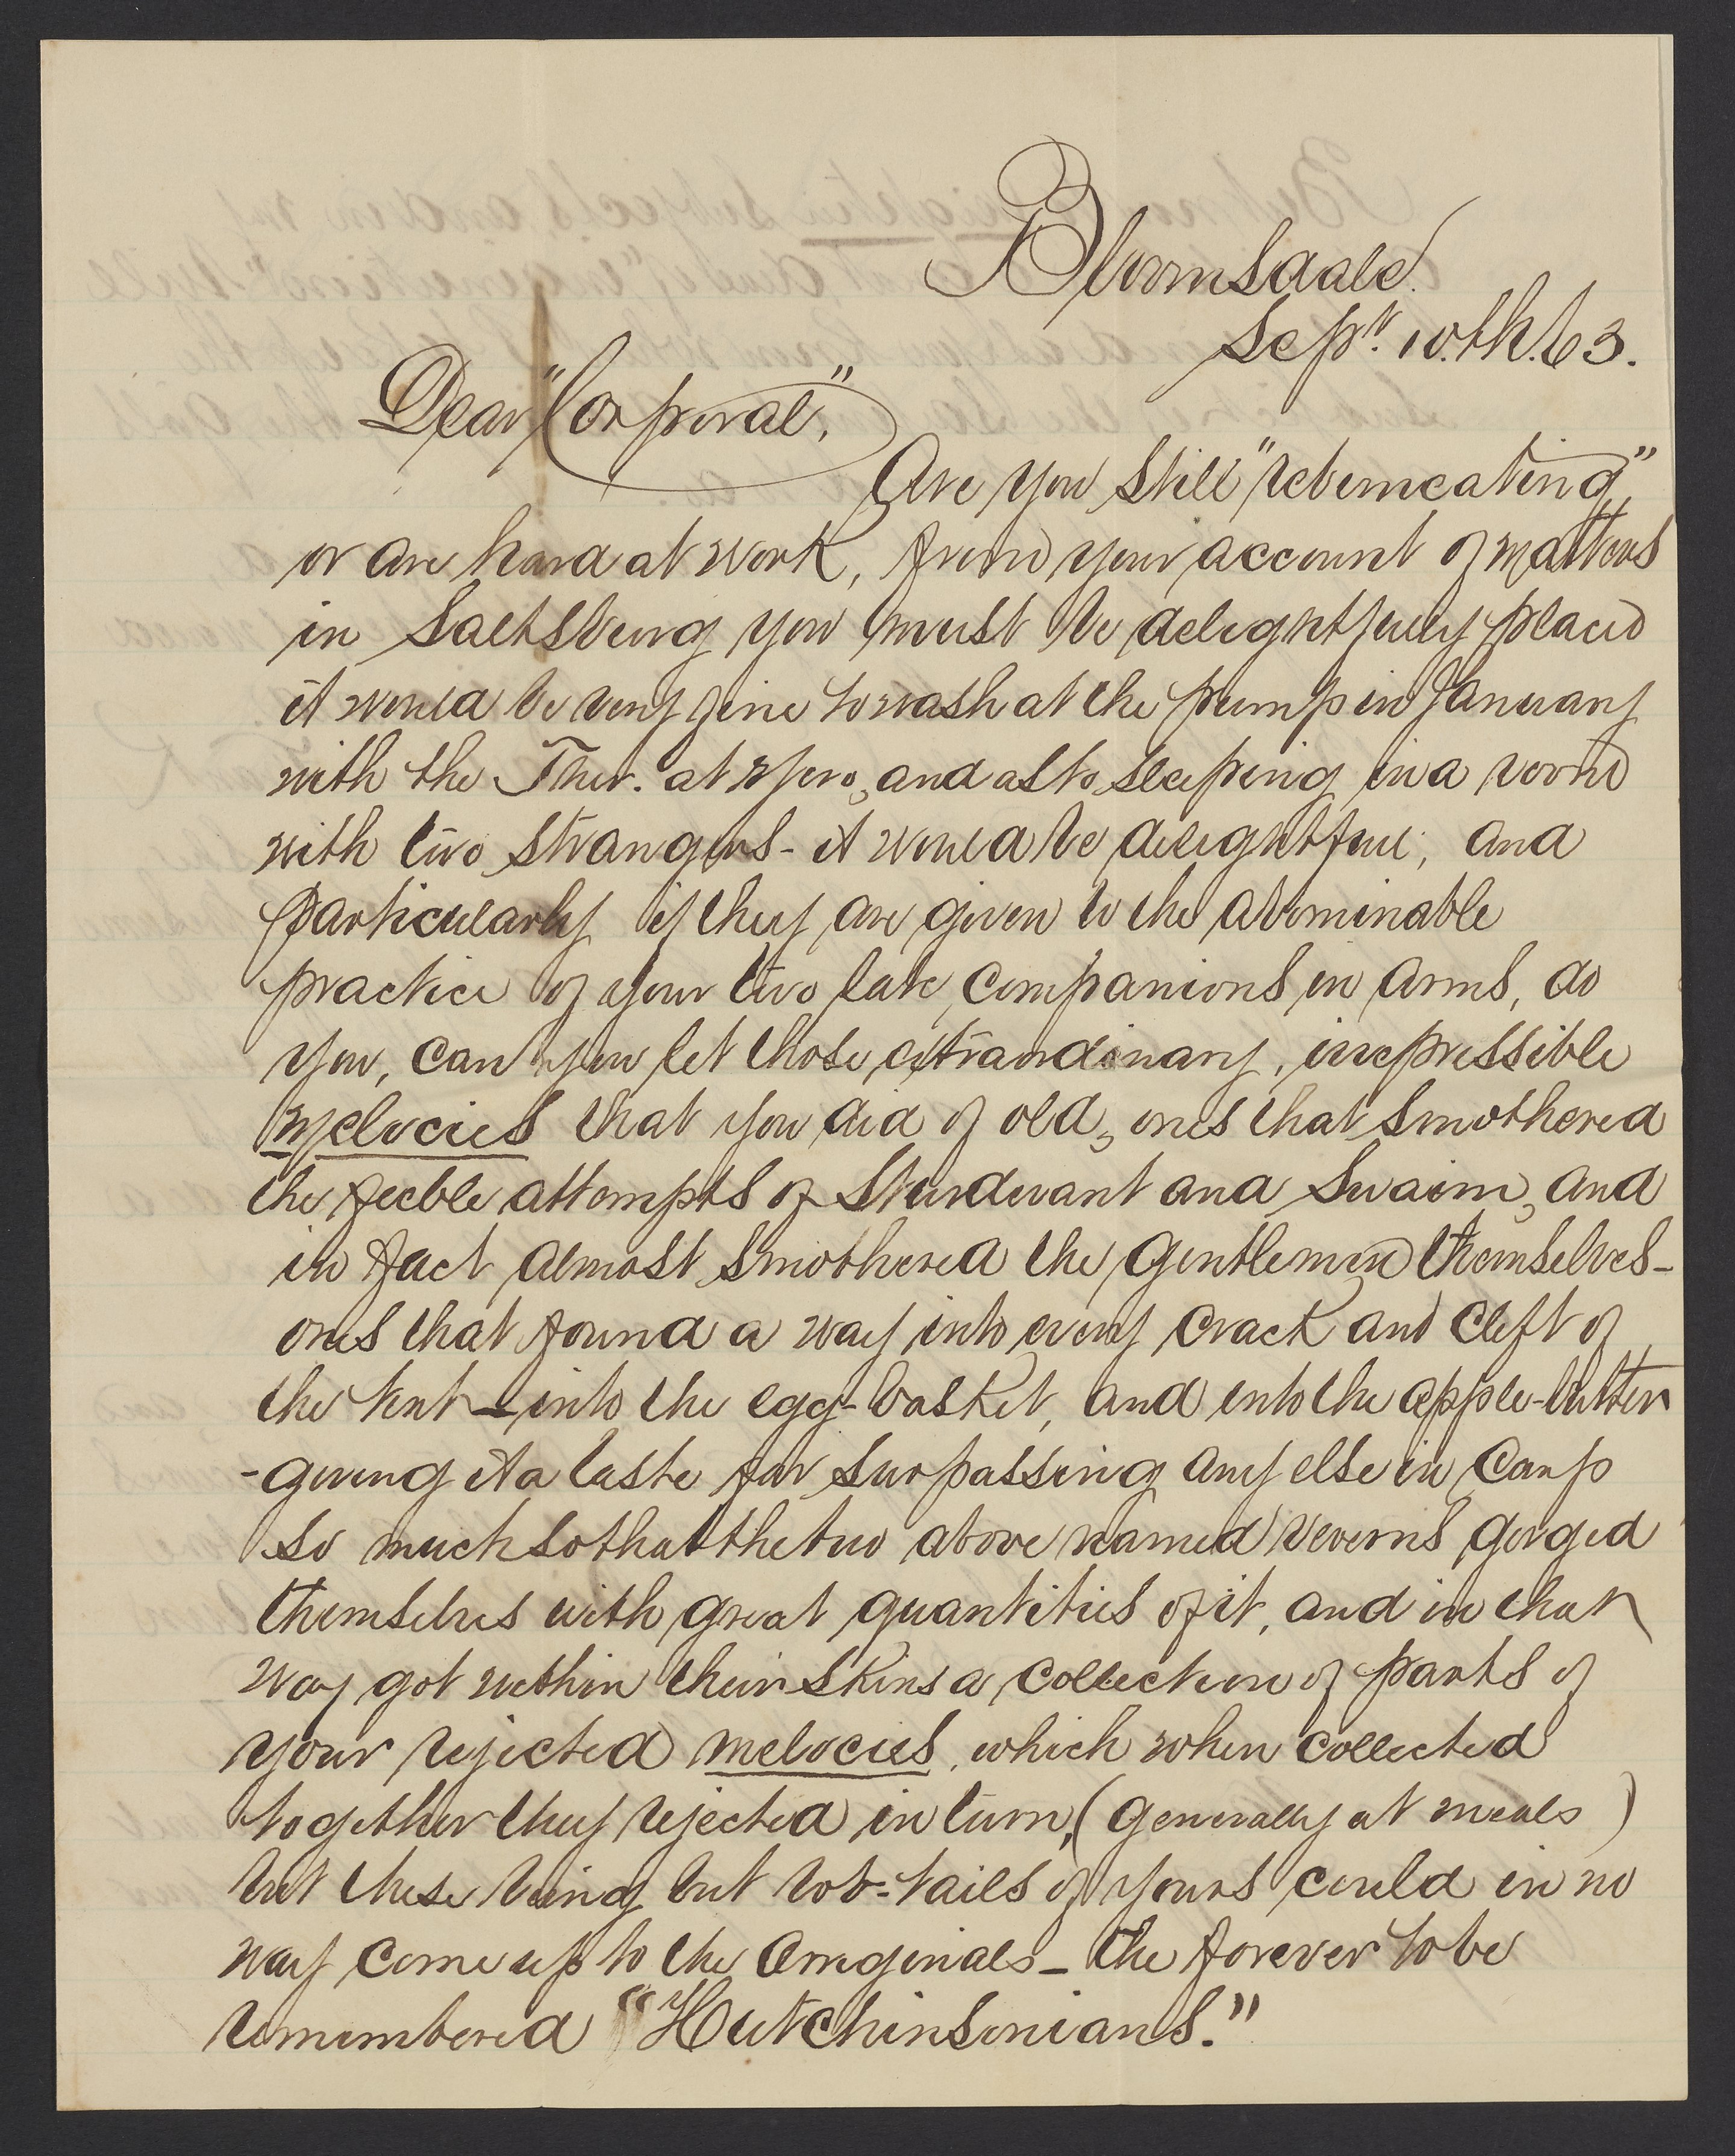 Bloomsdale.
Sept. 10.th. 63.
Dear "Corporal,"
Are you still "rebumcating",
or are hard at work, from your account of matters
in Saltsburg you must be delightfully placed
it would be very fine to wash at the pump in January
with the Ther. at Zero, and as to sleeping in a room
with two strangers - it would be delightful, and
particularly if they are given to the abominable
practice of your two late companions in arms, do
you, can you let those extraordinary, irrepressible
melocies that you did of old, ones that smothered
the feeble attempts of Sturdevant and Swaim, and
in fact almost smothered the gentlemen themselves -
ones that found a way into every crack and cleft of
the tent - into the egg-basket, and into the apple-butter
- giving it a taste far surpassing any else in Camp
so much so that the two above named reverns gorged
themselves with great quantities of it, and in that
way got within their skins a collection of parts of
your rejected melocies, which when collected
together they rejected in turn, (generally at meals)
but these being but bob-tails of yours could in no
way come up to the Orriginals - the forever to be
remembered "Hutchinsonians."